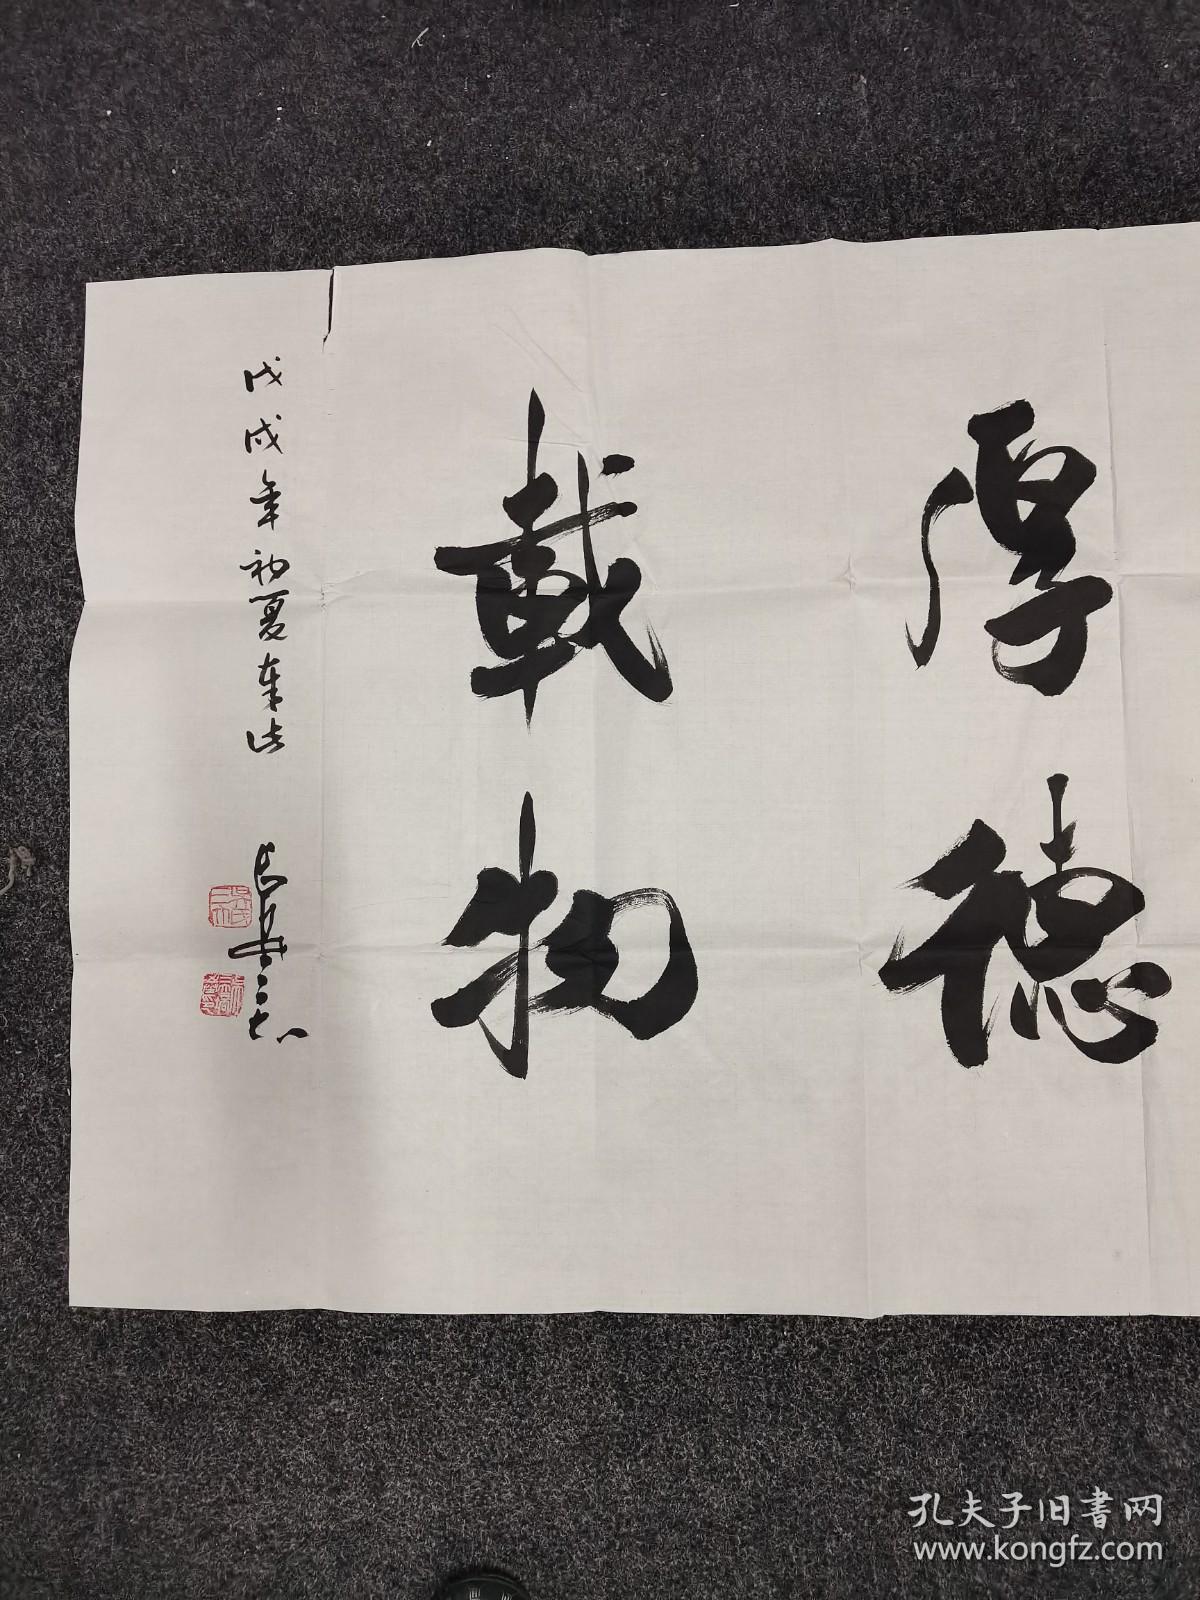 厚德
載物
戊戌年初夏
孔夫子旧書网
www.kongfz.com